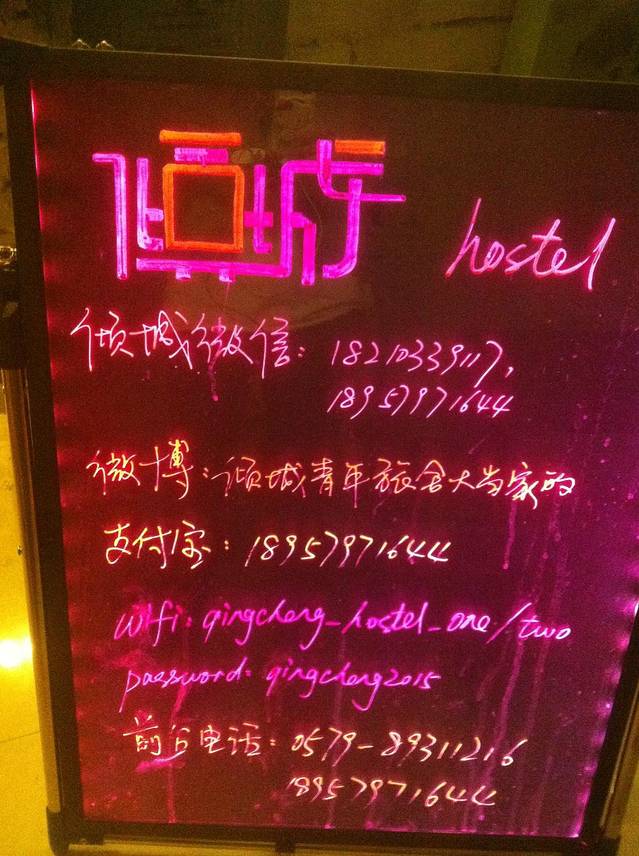 倾城 hostel
倾城微信: 18210339117,
18957971644
微博: 倾城青年旅舍大当家的
支付宝: 18957971644
wifi: qingcheng_hostel_one/two
password: qingcheng2015
前台电话: 0579-89311216
18957971644